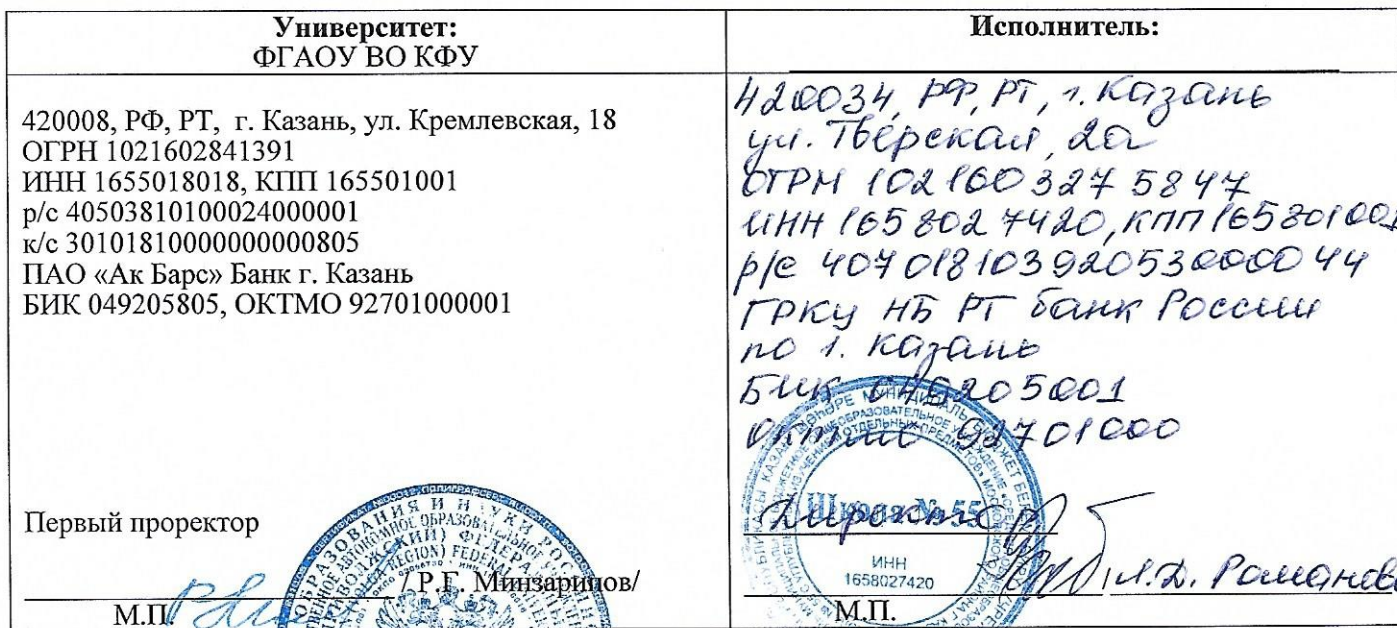 Университет:
ФГАОУ ВО КФУ
420008, РФ, РТ, г. Казань, ул. Кремлевская, 18
ОГРН 1021602841391
ИНН 1655018018, КПП 165501001
р/с 40503810100024000001
к/с 30101810000000000805
ПАО «Ак Барс» Банк г. Казань
БИК 049205805, ОКТМО 92701000001
Первый проректор
/ Р.Г. Минзарипов/
М.П.
Исполнитель:
420034, РФ, РТ, г. Казань
ул. Тверская, 2а
ОГРН 1021603275847
ИНН 1658027420, КПП 165801001
р/с 40701810392053000044
ГРКЦ НБ РТ банк России
по г. Казань
БИК 049205001
ОКТМО 92701000
Директор
Школа № 55
ИНН
1658027420
М.П.